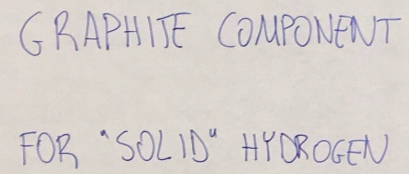 GRAPHITE COMPONENT
FOR "SOLID" HYDROGEN